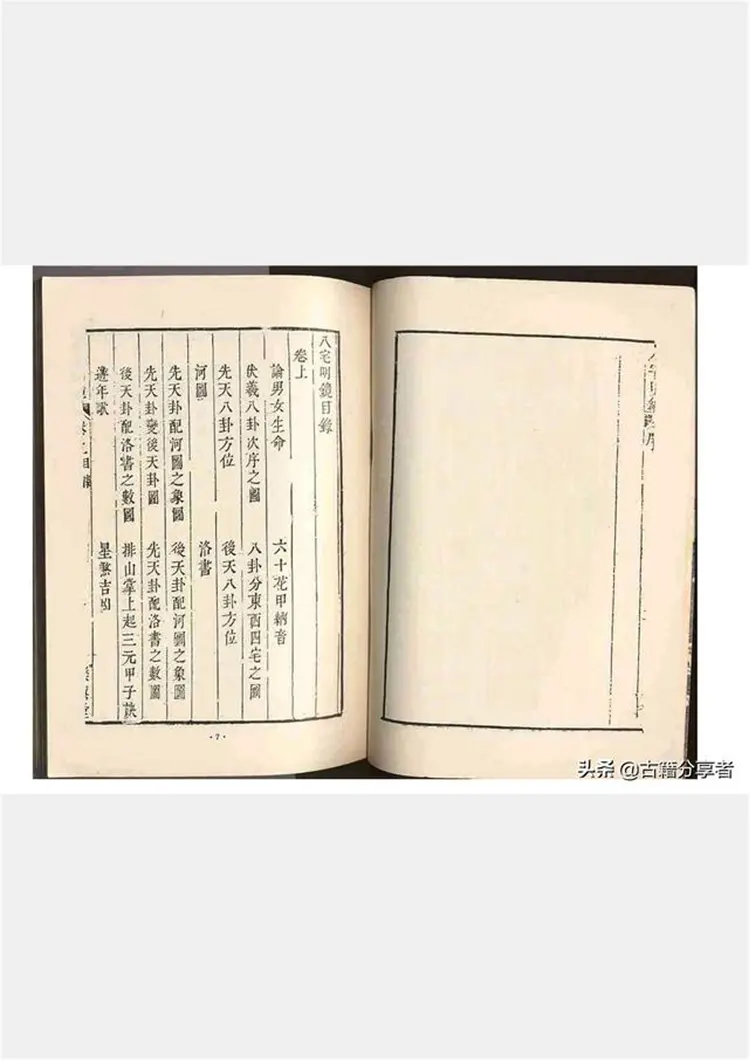 八宅明鏡目錄
卷上
論男女生命　六十花甲納音
伏羲八卦次序之圖　八卦分東西四宅之圖
先天八卦方位　後天八卦方位
河圖　洛書
先天卦配河圖之象圖　後天卦配河圖之象圖
先天卦變後天卦圖　先天卦配洛書之數圖
後天卦配洛書之數圖　排山掌上起三元甲子訣
遊年歌　星煞吉凶
·7·
头条 @古籍分享者